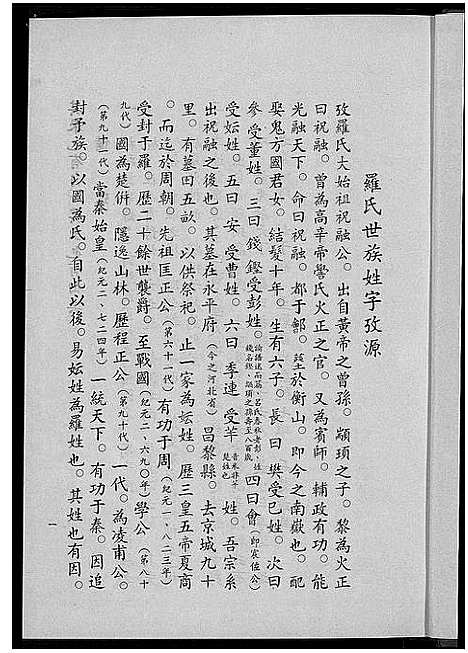 羅氏世族姓字攷源
攷羅氏大始祖祝融公。出自黃帝之曾孫。顓頊之子。黎為火正
曰祝融。曾為高辛帝嚳氏火正之官。又為賓師。輔政有功。能
光融天下。命曰祝融。都于鄶。塟於衡山。即今之南嶽也。配
娶鬼方國君女。結髮十年。生有六子。長曰樊受巳姓。次曰
參受董姓。三曰錢鏗受彭姓。四曰會
受妘姓。五曰安受曹姓。六曰季連受羋姓。吾宗系
出祝融之後也。其墓在永平府(今之河北省)昌黎縣。去京城九十
里。有墓田五畝。以供祭祀。止一家為妘姓。歷三皇五帝夏商
。而迄於周朝。先祖匡正公(第六十一代)有功于周(紀元一、八二三年)
受封于羅。歷二十餘世襲爵。至戰國(紀元二、六九〇年)學公(第八十
九代)國為楚併。隱逸山林。歷程正公(第九十代)一代。為凌甫公。
(第九十一代)當秦始皇(紀元二、七二四年)一統天下。有功于秦。因追
封予族。以國為氏。自此以後。易妘姓為羅姓也。其姓也有因。
一